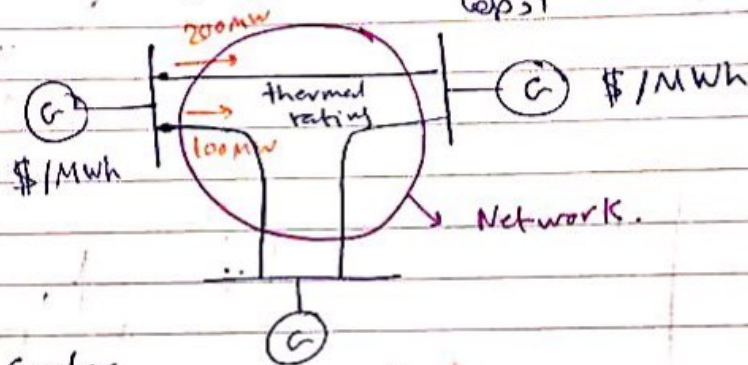 200MW
G
thermal
rating
G
$/MWh
100MW
$/MWh
Network.
G